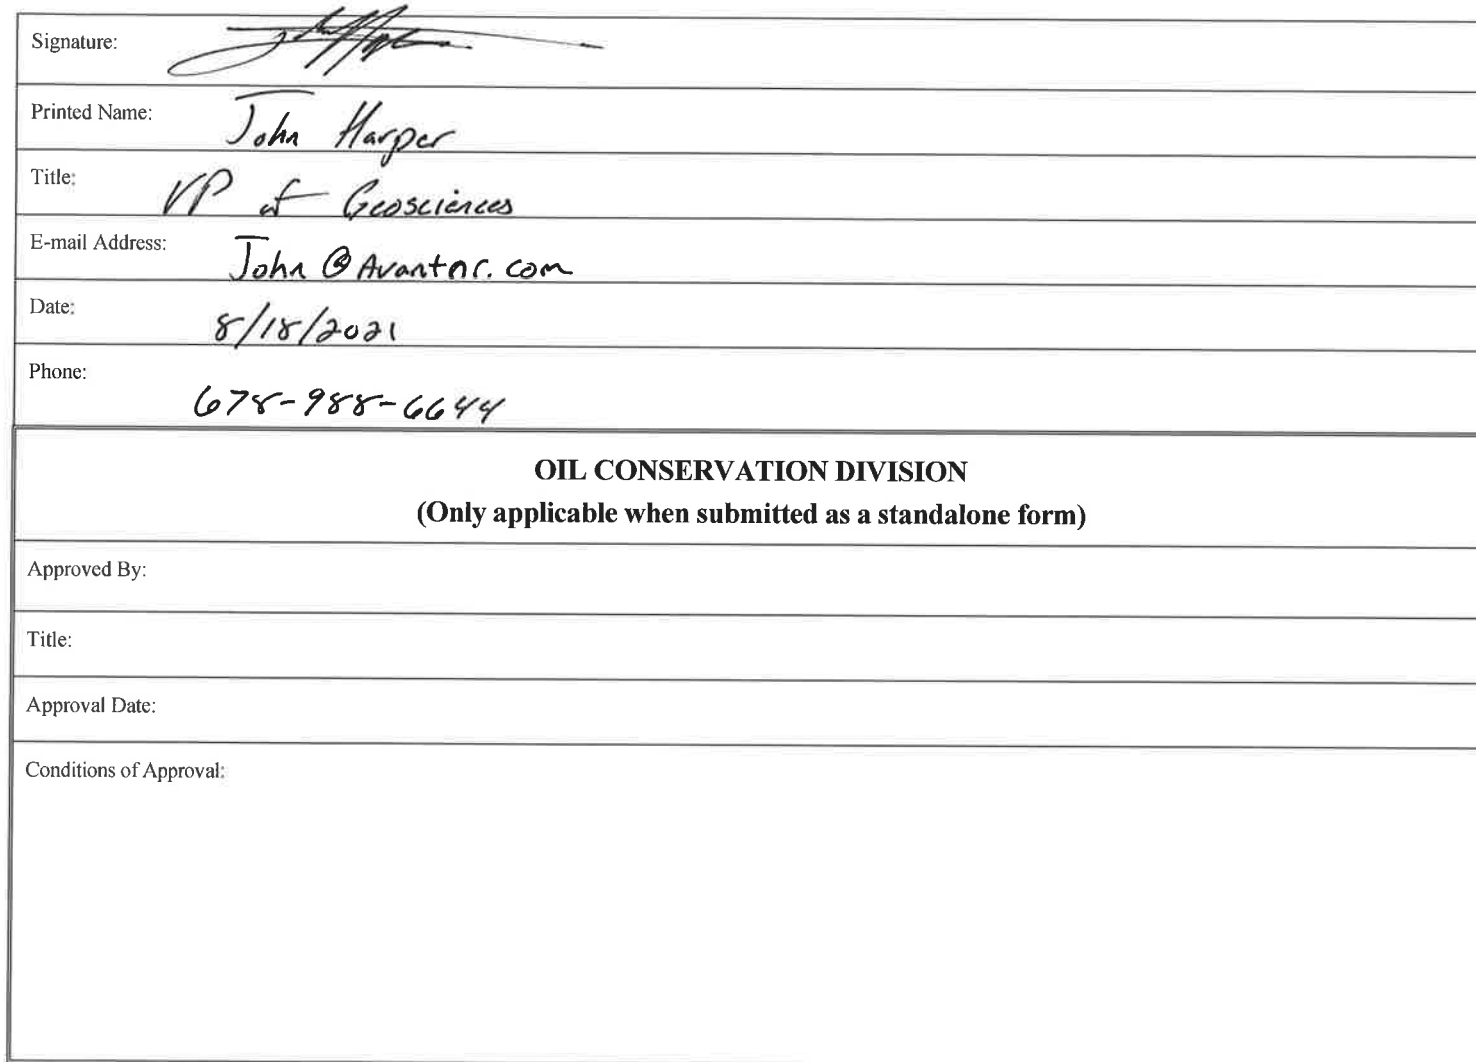 Signature:
Printed Name: John Harper
Title: VP of Geosciences
E-mail Address: John@Avantnr.com
Date: 8/18/2021
Phone: 678-988-6644
OIL CONSERVATION DIVISION
(Only applicable when submitted as a standalone form)
Approved By:
Title:
Approval Date:
Conditions of Approval: